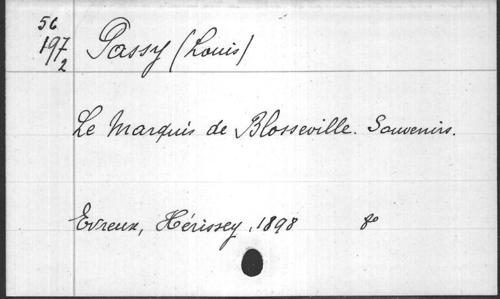 56
197
2
Passy (Louis)
Le Marquis de Blosseville. Souvenirs.
Evreux, Hérissey, 1898 8°